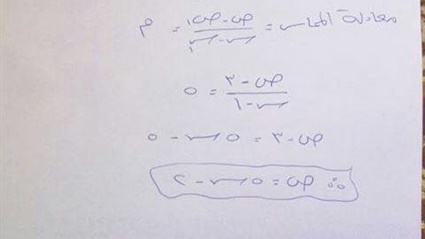 معادلة المماس = ص - ص١ / س - س١ = م
ص - ٣ / س - ١ = ٥
ص - ٣ = ٥س - ٥
∴ ص = ٥س - ٢